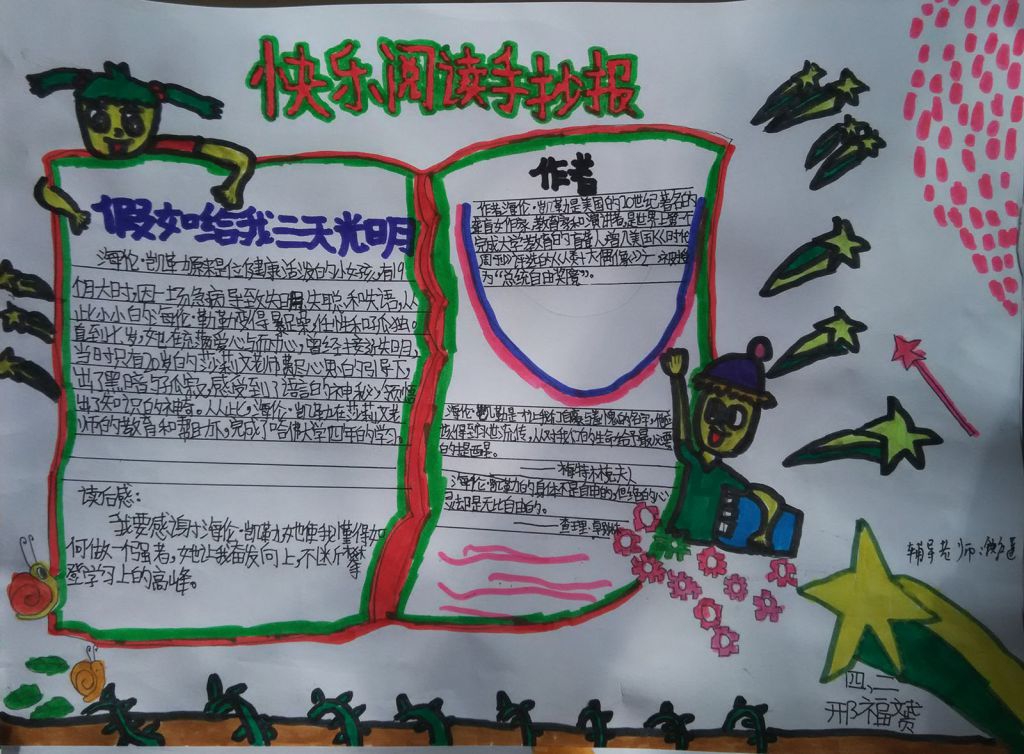 快乐阅读手抄报
假如给我三天光明
海伦·凯勒原来是位健康活泼的小女孩,有19
个月大时,因一场急病导致失明,失聪和失语,从
此小小白尔海伦·勒勒变得暴躁,任性和孤独。
直到七岁,她在充满爱心与耐心,曾经接近失明,
当时只有20岁的莎莉文老师尽心思的引导下,
出了黑暗与孤寂,感受到了语言的神秘,领悟
出了知识的神奇。从此,海伦·凯勒在莎莉文老
师的教育和帮助下,完成了哈佛大学四年的学习。
读后感:
我要感谢海伦·凯勒,她使我懂得如
何做一个强者,她让我奋发向上,不断攀
登学习上的高峰。
作者
作者海伦·凯勒是美国的20世纪著名的
盲聋女作家,教育家和演讲者,是世界上第一个
完成大学教育的盲聋人,曾入美国《时代
周刊》评选的《人类十大偶像》之一,被授
为“总统自由奖章”。
海伦·凯勒是
的生命给了最必要
的东西是。
海伦·凯勒的身体不是自由的,但她的心
灵却是无比自由的。
辅导老师:
四,二
邢福赟